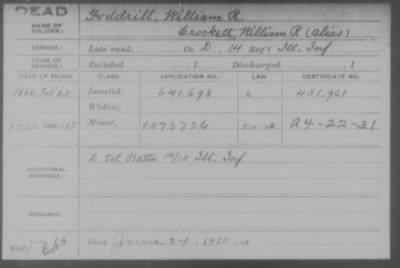 DEAD
NAME OF SOLDIER: Foddrill, William R.
Crockett, William R (alias)
SERVICE: Late rank, Co. D, 14 Reg't Ill. Inf.
TERM OF SERVICE: Enlisted , 1 Discharged , 1
DATE OF FILING. CLASS. APPLICATION NO. LAW. CERTIFICATE NO.
1888, Feb 25 Invalid, 641,698 451,961
Widow,
Minor, 1573726 A4-22-31
ADDITIONAL SERVICES: D Vet Battn 14/15 Ill. Inf.
REMARKS:
Died June 24, , at